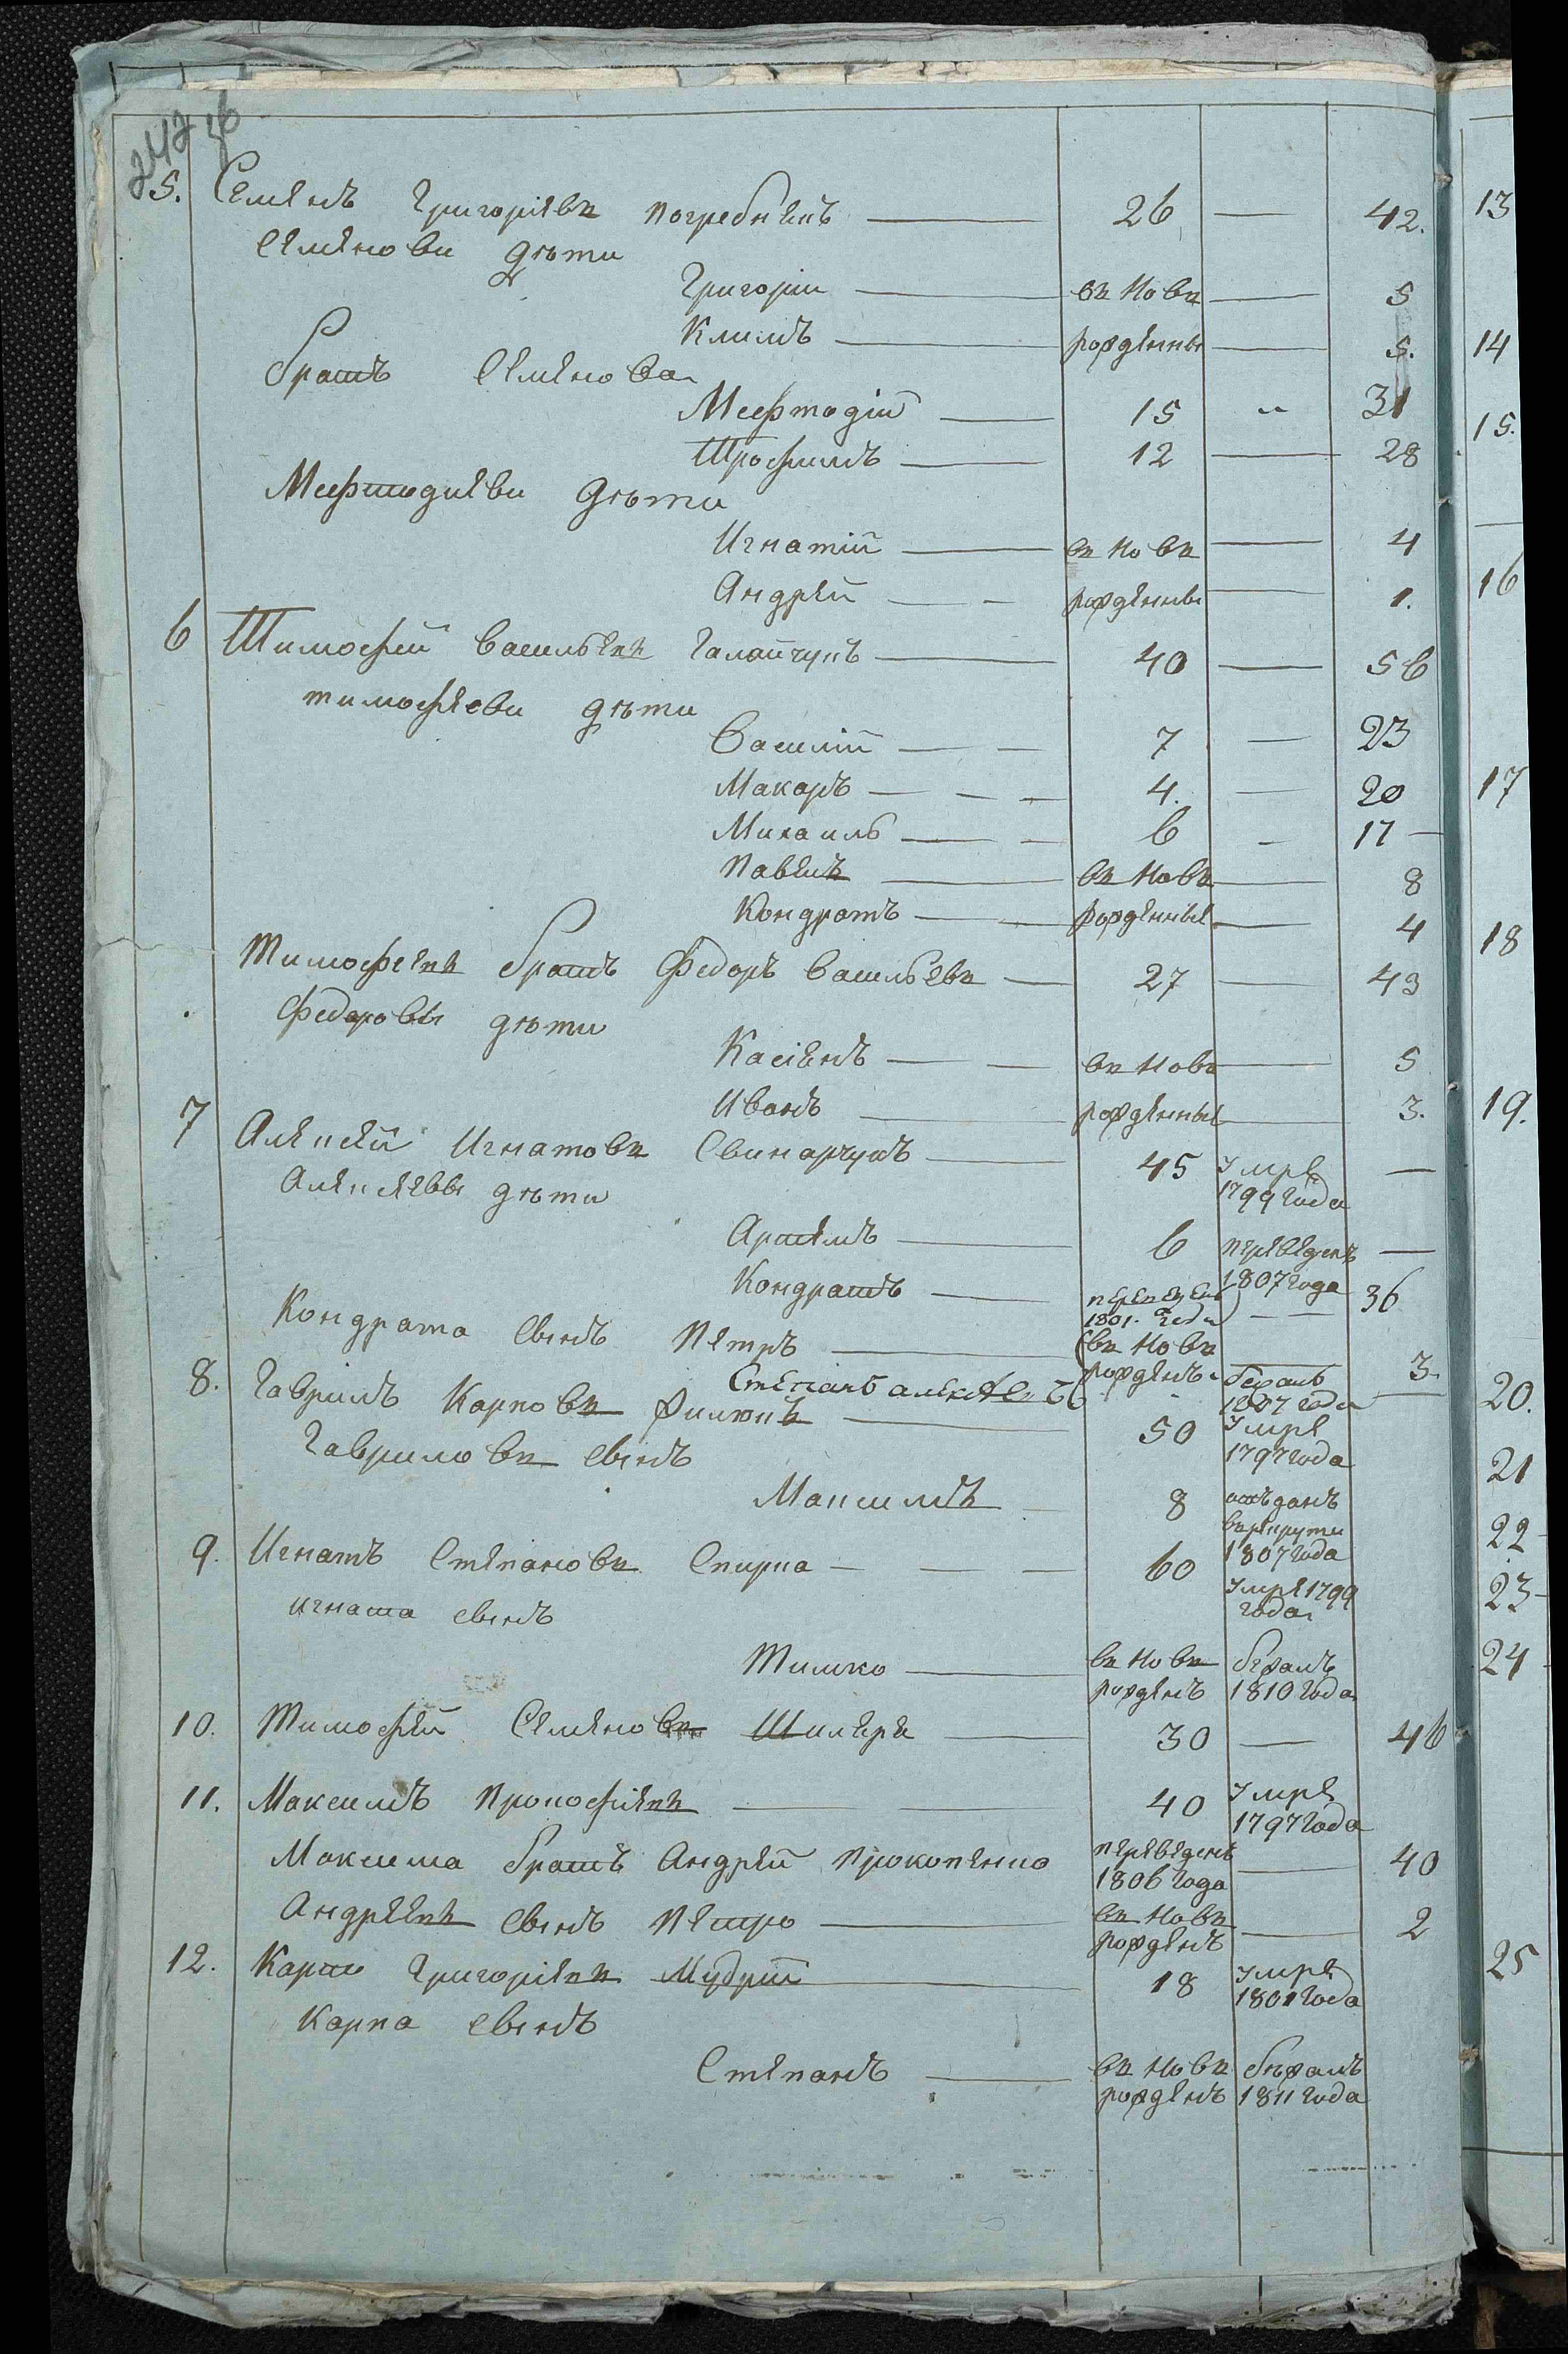 242 36
5. Семенъ Григоріевъ Погребнякъ — 26 — 42.
Семенови дѣти
Григорій — въ Новъ — 5
Климъ — рожденны — 5.
братъ Семенова
Мефтодій — 15 " 31
Трофимъ — 12 — 28
Мефтодиеви дѣти
Игнатій — въ Новъ — 4
Андрей — рожденны — 1.
6 Тимофей Васильевъ Галайчукъ — 40 — 56
тимофеєви дѣти
Василій — 7 — 23
Макаръ — 4. — 20
Михаилъ — 6 — 17 —
Павелъ — въ Новъ — 8
Кондратъ — рожденные — 4
Тимофеевъ братъ Федоръ Васильевъ — 27 — 43
Федоровы дѣти
Касіянъ — въ Новъ — 5
Иванъ — рожденные — 3.
7 Алексей Игнатовъ Свинарчукъ — 45 умре 1799 года —
Алексеевы дѣти
Артемъ — 6 переведенъ 1807 года —
Кондратъ — 1801. года — 36
Кондрата сынъ Петръ — въ Новъ рожденъ — 3.
Степанъ бежалъ 1807 года
8. Гаврилъ Карповъ — 50 умре 1797 года
Гавриловъ сынъ
Максимъ — 8 отъданъ врекруты 1807 года
9. Игнатъ Степановъ Спирка — 60 умре 1799 года
игната сынъ
Тимко — въ Новъ рожденъ бежалъ 1810 года
10. Тимофей Семеновъ — 30 — 46
11. Максимъ Прокофіевъ — 40 умре 1797 года
Максима братъ Андрей Прокопенко переведенъ 1806 года — 40
Андреевъ сынъ Петро — въ Новъ рожденъ — 2
12. Карпо Григоріевъ Мудрій — 18 умре 1801 года
Карпа сынъ
Степанъ — въ Новъ рожденъ бѣжалъ 1811 года
13
14
15.
16
17
18
19.
20.
21
22
23
24
25